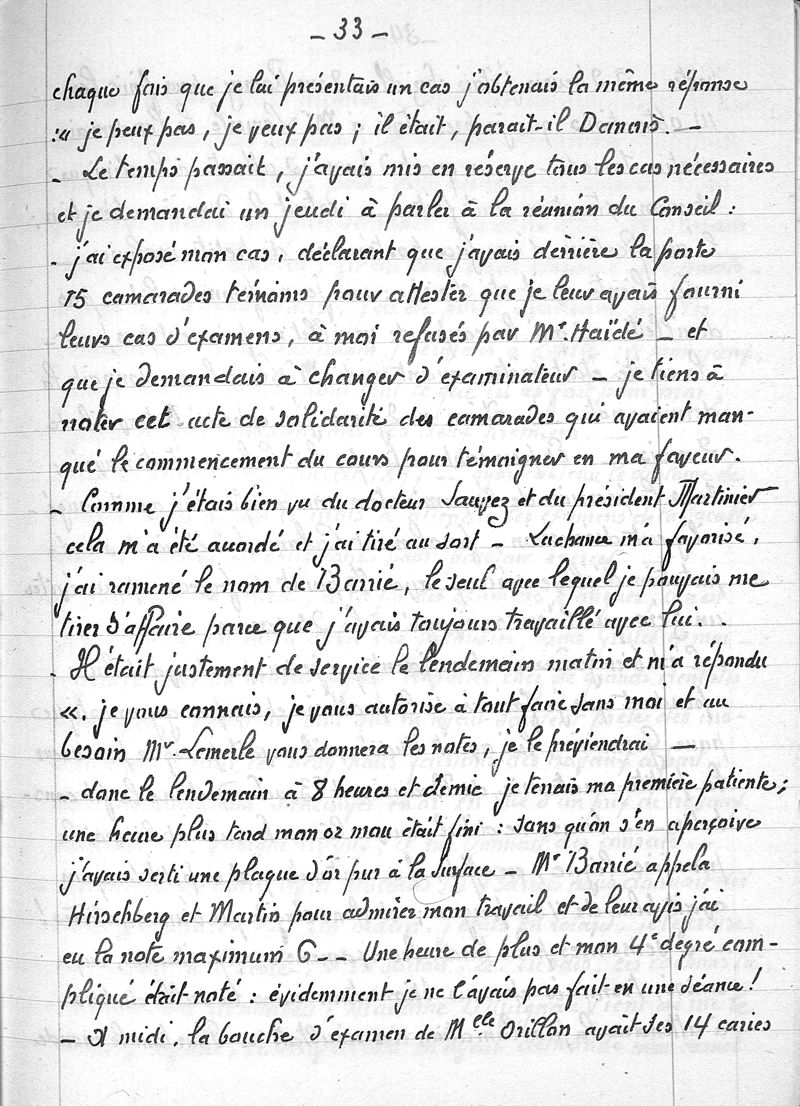 - 33 -
chaque fois que je lui présentais un cas j'obtenais la même réponse
:« je peux pas, je veux pas ; il était, parait-il Danois. -
- Le temps passait, j'avais mis en réserve tous les cas nécessaires
et je demandai un jeudi à parler à la réunion du Conseil :
- j'ai exposé mon cas, déclarant que j'avais derrière la porte
15 camarades témoins pour attester que je leur avais fourni
leurs cas d'examens, à moi refusés par Mr. Haïdé - et
que je demandais à changer d'examinateur - je tiens à
noter cet acte de solidarité des camarades qui avaient man-
qué le commencement du cours pour témoigner en ma faveur.
- Comme j'étais bien vu du docteur Sauvez et du président Martinier
cela m'a été accordé et j'ai tiré au sort - La chance m'a favorisé,
j'ai ramené le nom de Barrié, le seul avec lequel je pouvais me
tirer d'affaire parce que j'avais toujours travaillé avec lui.
. Il était justement de service le lendemain matin et m'a répondu
«. je vous connais, je vous autorise à tout faire sans moi et au
besoin Mr. Lemerle vous donnera les notes, je le préviendrai —
- donc le lendemain à 8 heures et demie je tenais ma première patiente ;
une heure plus tard mon or mou était fini : sans qu'on s'en aperçoive
j'avais serti une plaque d'or pur à la surface - Mr Barrié appela
Hirschberg et Martin pour admirer mon travail et de leur avis j'ai
eu la note maximum 6 -- Une heure de plus et mon 4e degré com-
pliqué était noté : évidemment je ne l'avais pas fait en une séance !
- A midi, la bouche d'examen de Melle Orillon avait ses 14 caries